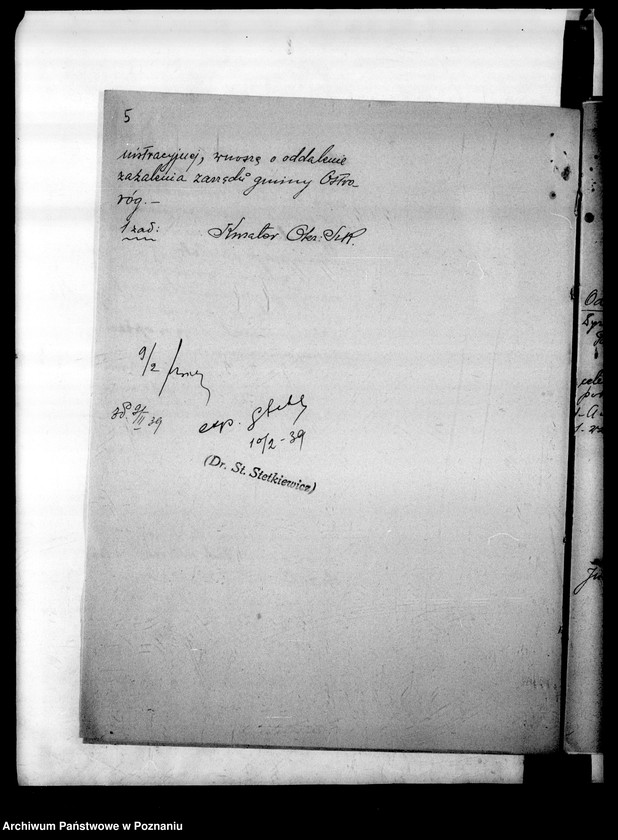 5
nistracyjnej, wnoszę o oddalenie
zażalenia zarządu gminy Ostro-
róg.—
1 zał:
Kurator Okr. Szk.
9/2
9/II 39
exp.
10/2-39
(Dr. St. Stetkiewicz)
Archiwum Państwowe w Poznaniu